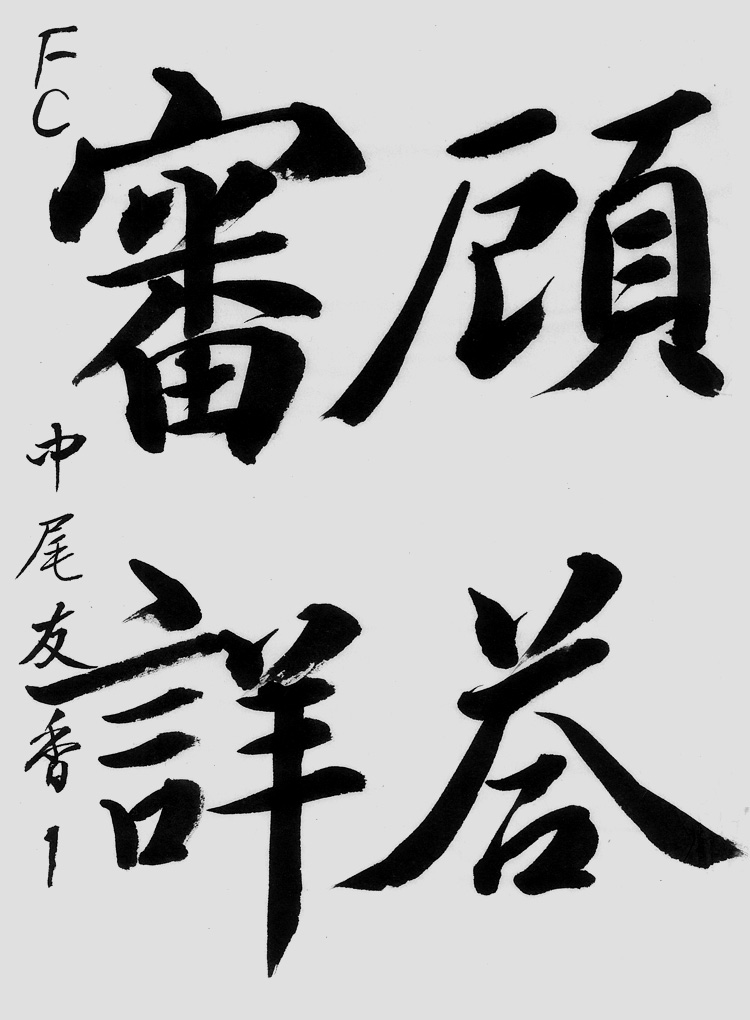 顧答
審詳
FC 中尾友香 1